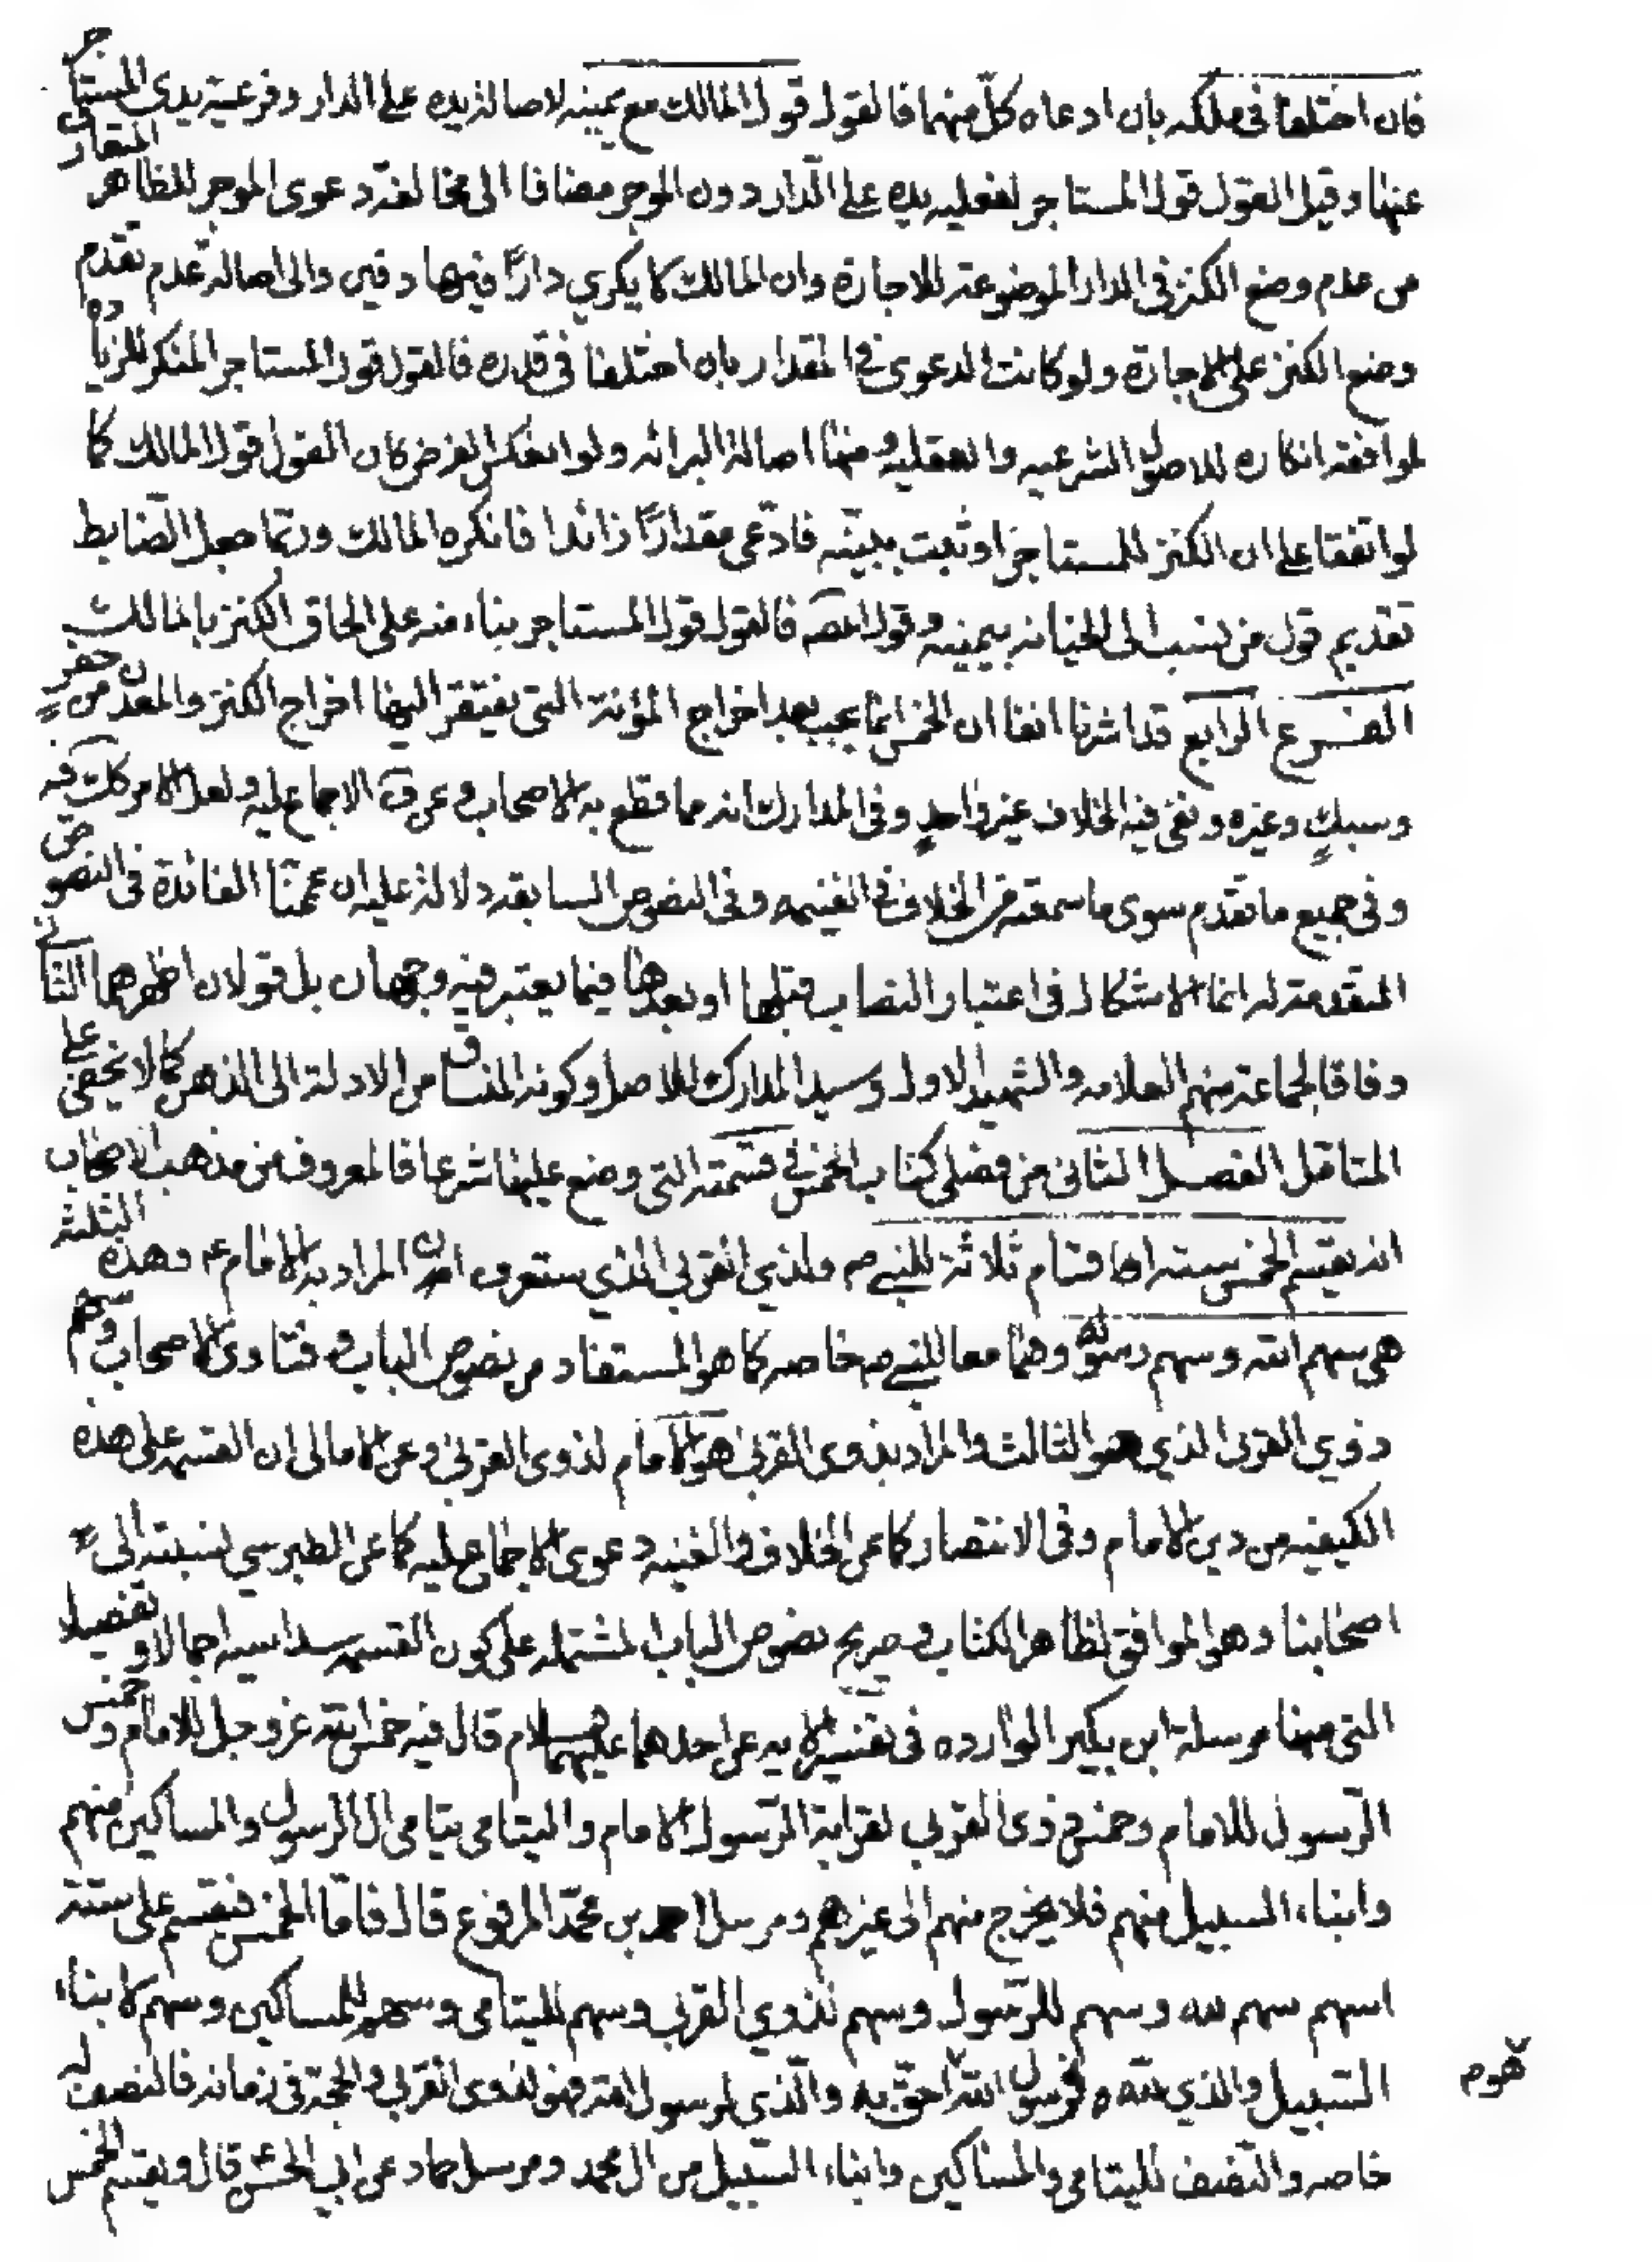 فان اختلفا في ملكه بان ادعاه كل منهما فالقول قول المالك مع يمينه لاصالة يده على الدار وفرعية يدى المستاجر
عنها وقيل القول قول المستاجر لفعليه يده على الدار دون الموجر مضافا الى مخالفة دعوى الموجر للظاهر
من عدم وضع الكنز في الدار الموضوعة للاجارة وان المالك لا يكري دارًا فيها دفين والى اصالة عدم تقدم
وضع الكنز على الاجارة ولو كانت الدعوى في المقدار بان اختلفا في قدره فالقول قول المستاجر المنكر للزيادة
لموافقة انكاره للاصول الشرعيه والعقليه ومنها اصالة البرائه ولو انعكس الفرض كان القول قول المالك كما
لو اتفقا على ان الكنز للمستاجر او ثبت ببينه فادّعى مقدارًا زائدا فانكره المالك وربّما جعل الضابط
تقديم قول من نسب الى الخيانه بيمينه وقول المصه فالقول قول المستاجر بناء منه على الحاق الكنز بالمالك
الفرع الرابع قد اشرنا انفا ان الخمس انما يجب بعد اخراج المؤنة التي يفتقر اليها اخراج الكنز والمعدن من حفر
وسبك وغيره ونفى فيه الخلاف غير واحد وفي المدارك انه مما قطع به الاصحاب وعن ف الاجماع عليه ولعل الامر كك فيه
وفي جميع ما تقدم سوى ما سمعته من الخلاف في الغنيمه وفي النصوص السابقه دلالة عليه ان عممنا الفائدة في النصوص
المتقدمة له انما الاشكال في اعتبار النصاب قبلها او بعدها فيما يعتبر فيه وجهان بل قولان اظهرهما الثاني
وفاقا لجماعة منهم العلامه والشهيد الاول وسيد المدارك للاصل وكونه المنساق من الادلة الى الذهن كما لا يخفى على
المتاقل الفصل الثانى من فصلى كتاب الخمس في قسمته التى وضع عليها شرعا فالمعروف من مذهب الاصحاب
انه يقسم الخمس ستة اقسام ثلاثة للنبي ص ولذي القربى الذي ستعرف ان المراد به الامام ع وهذه الثلثة
هي سهم الله وسهم رسوله وهما معا للنبي ص خاصه كما هو المستفاد من نصوص الباب وفتاوى الاصحاب وسهم
ذوي القربى الذي هو الثالث والمراد بذوى القربى هو الامام لذوى القربى وعن الامالى ان القسمه على هذه
الكيفيه من دين الامام وفي الانتصار كما عن الخلاف والغنيه دعوى الاجماع عليه كما عن الطبرسي نسبته الى
اصحابنا وهو الموافق لظاهر الكتاب وصريح نصوص الباب المشتمله على كون القسمه سداسيه اجمالا وتفصيلا
التي منها مرسلة ابن بكير الوارده في تفسير الايه عن احدهما عليهما السلام قال فيه خمس الله عزوجل للامام وخمس
الرّسول للامام وخمس ذوى القربى لقرابة الرّسول الامام واليتامى يتامى ال الرسول والمساكين منهم
وابناء السبيل منهم فلا يخرج منهم الى غيرهم ومرسل احمد بن محمّد المرفوع قال فامّا الخمس فيقسم على ستة
اسهم سهم لله وسهم للرّسول وسهم لذوي القربى وسهم لليتامى وسهم للمساكين وسهم لابناء
السّبيل والذي لله فرسول الله احقّ به والّذي لرسول الله فهو لذوى القربى والحجة في زمانه فالنصف له
هوم
خاصه والنّصف لليتامى والمساكين وابناء السّبيل من ال محمد ومرسل حماد عن ابي الحسن قال ويقسم الخمس